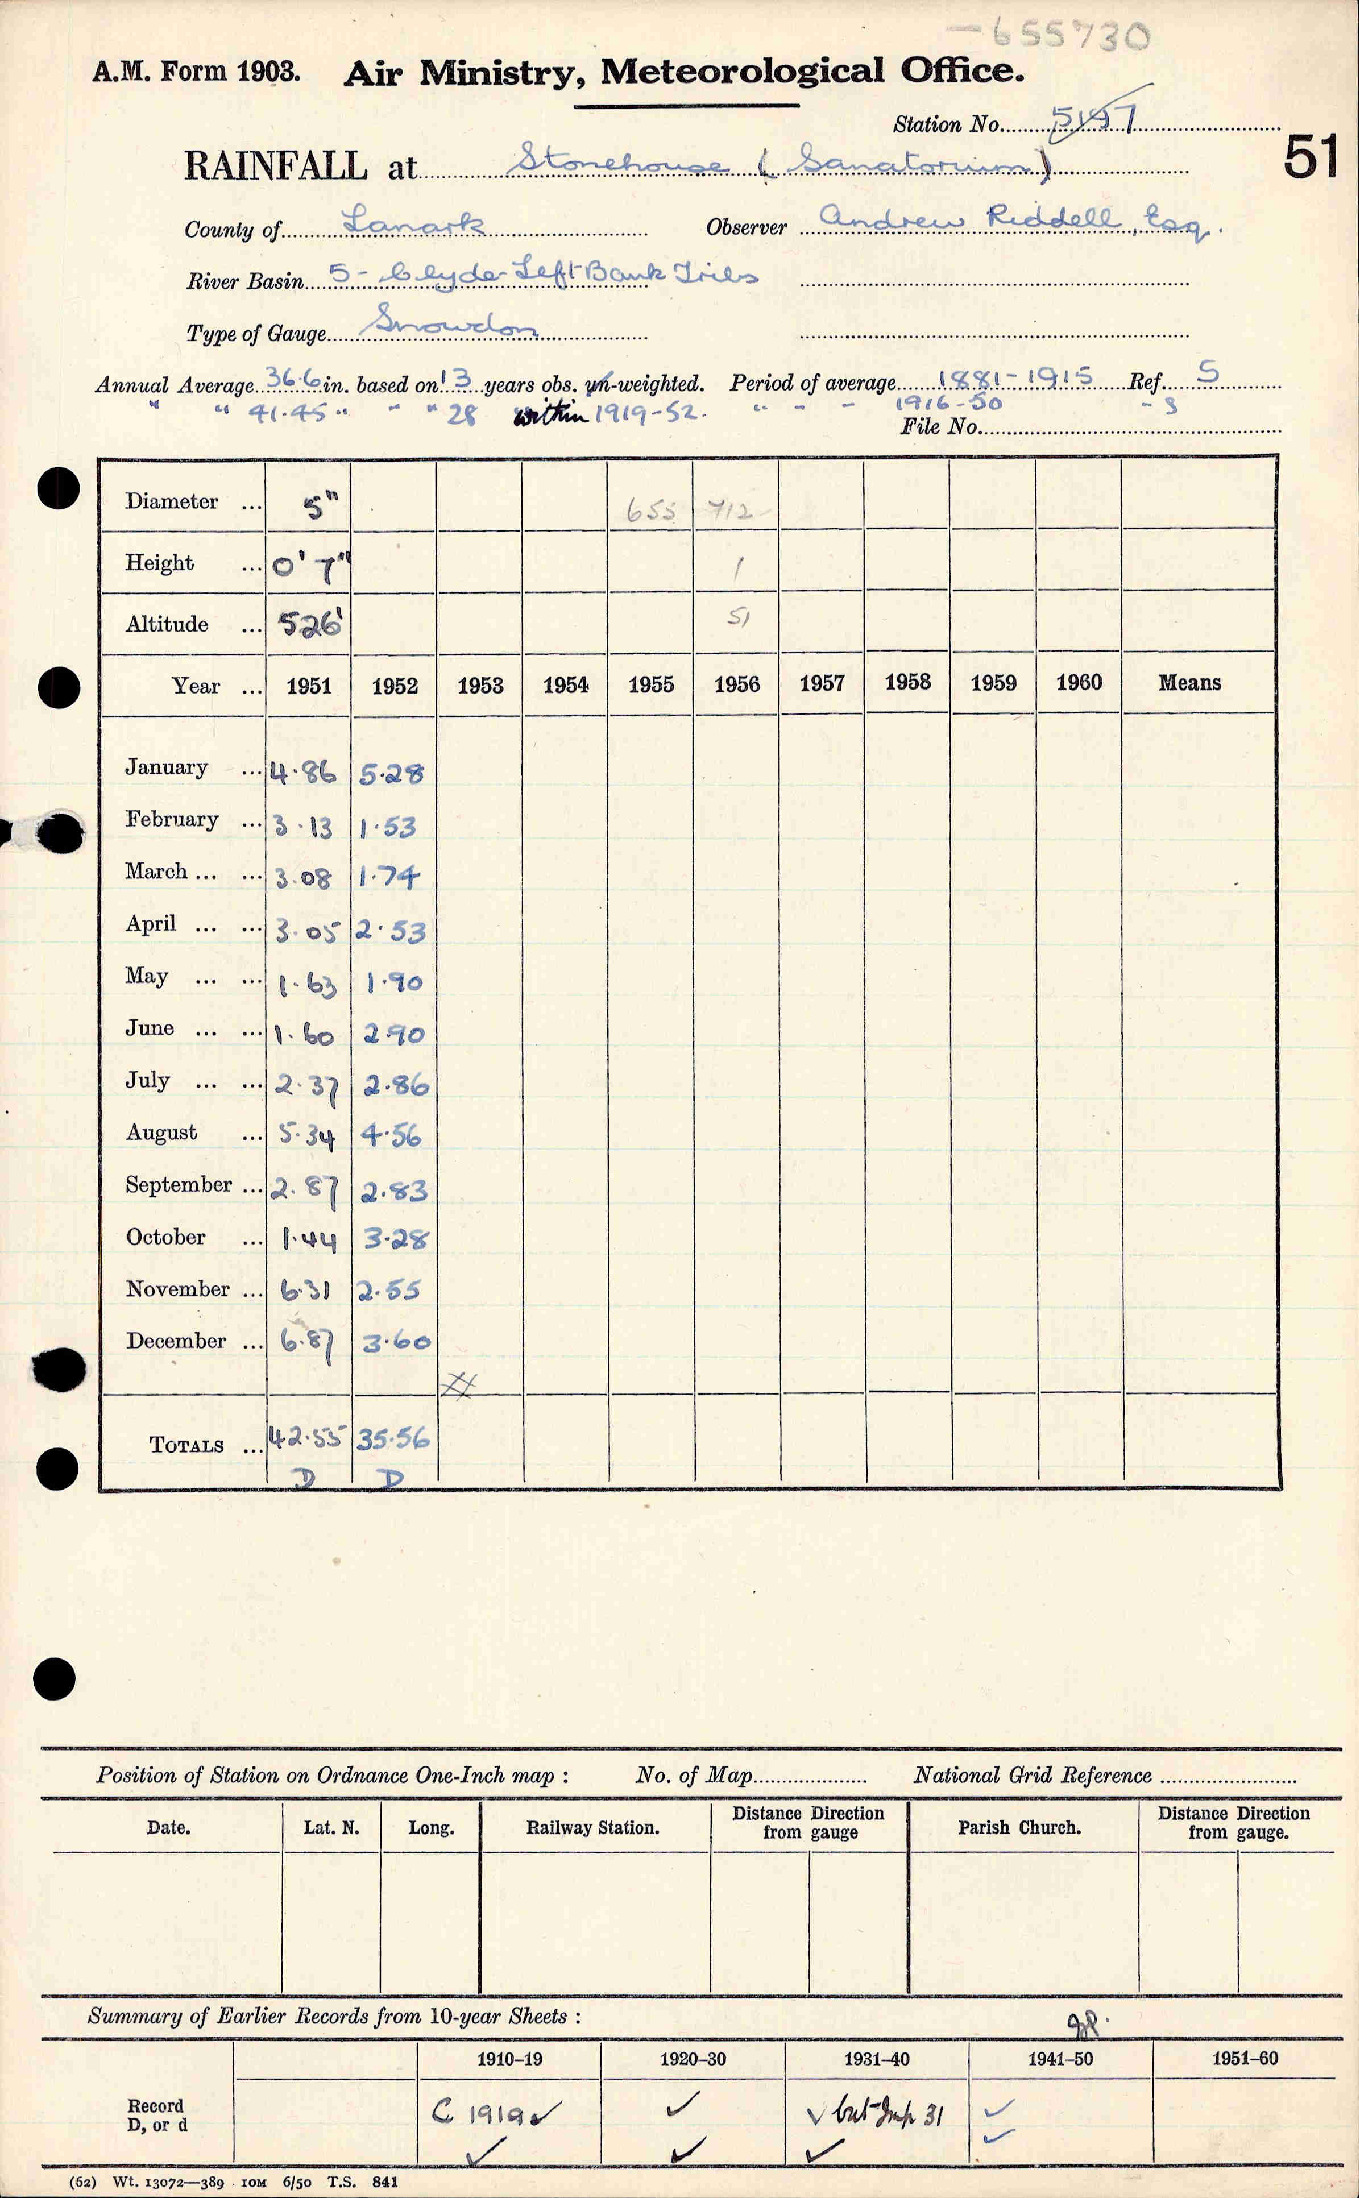 -655730
A.M. Form 1903. Air Ministry, Meteorological Office.
Station No. 5147
51
RAINFALL at Stonehouse (Sanatorium)
County of Lanark Observer Andrew Riddell, Esq.
River Basin 5 - Clyde-Left Bank Tribs
Type of Gauge Snowdon
Annual Average 36.6 in. based on 13 years obs. un-weighted. Period of average 1881-1915 Ref. S
" " 41.45 " " " 28 within 1919-52. " - - 1916-50 - S
File No.
Diameter ... 5" 655 712
Height ... 0' 7" 1
Altitude ... 526' 51
Year ... 1951 1952 1953 1954 1955 1956 1957 1958 1959 1960 Means
January ... 4.86 5.28
February ... 3.13 1.53
March ... ... 3.08 1.74
April ... ... 3.05 2.53
May ... ... 1.63 1.90
June ... ... 1.60 2.90
July ... ... 2.37 2.86
August ... 5.34 4.56
September ... 2.87 2.83
October ... 1.44 3.28
November ... 6.31 2.55
December ... 6.87 3.60
TOTALS ... 42.55 35.56
D D
Position of Station on Ordnance One-Inch map : No. of Map National Grid Reference
Date. Lat. N. Long. Railway Station. Distance Direction from gauge Parish Church. Distance Direction from gauge.
Summary of Earlier Records from 10-year Sheets :
1910-19 1920-30 1931-40 1941-50 1951-60
Record D, or d C 1919 ✓ ✓ ✓ but Imp 31 ✓
✓ ✓ ✓ ✓
(62) Wt. 13072—389 10M 6/50 T.S. 841